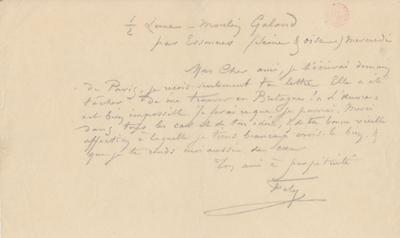 ½ Lune - Moulin Galand
par Essonnes (Seine & oise) mercredi
Mon Cher ami, je t'écrirai demain
de Paris, je reçois seulement ta lettre. Elle a été
me trouver en Bretagne! 
est bien impossible Je ferai ce que je pourrai, Merci
dans tous les cas et de ton idée, & de ta bonne vieille
affection à laquelle je tiens beaucoup crois-le bien, &
que je te rends moi aussi de
Ton ami à perpétuité
Faly